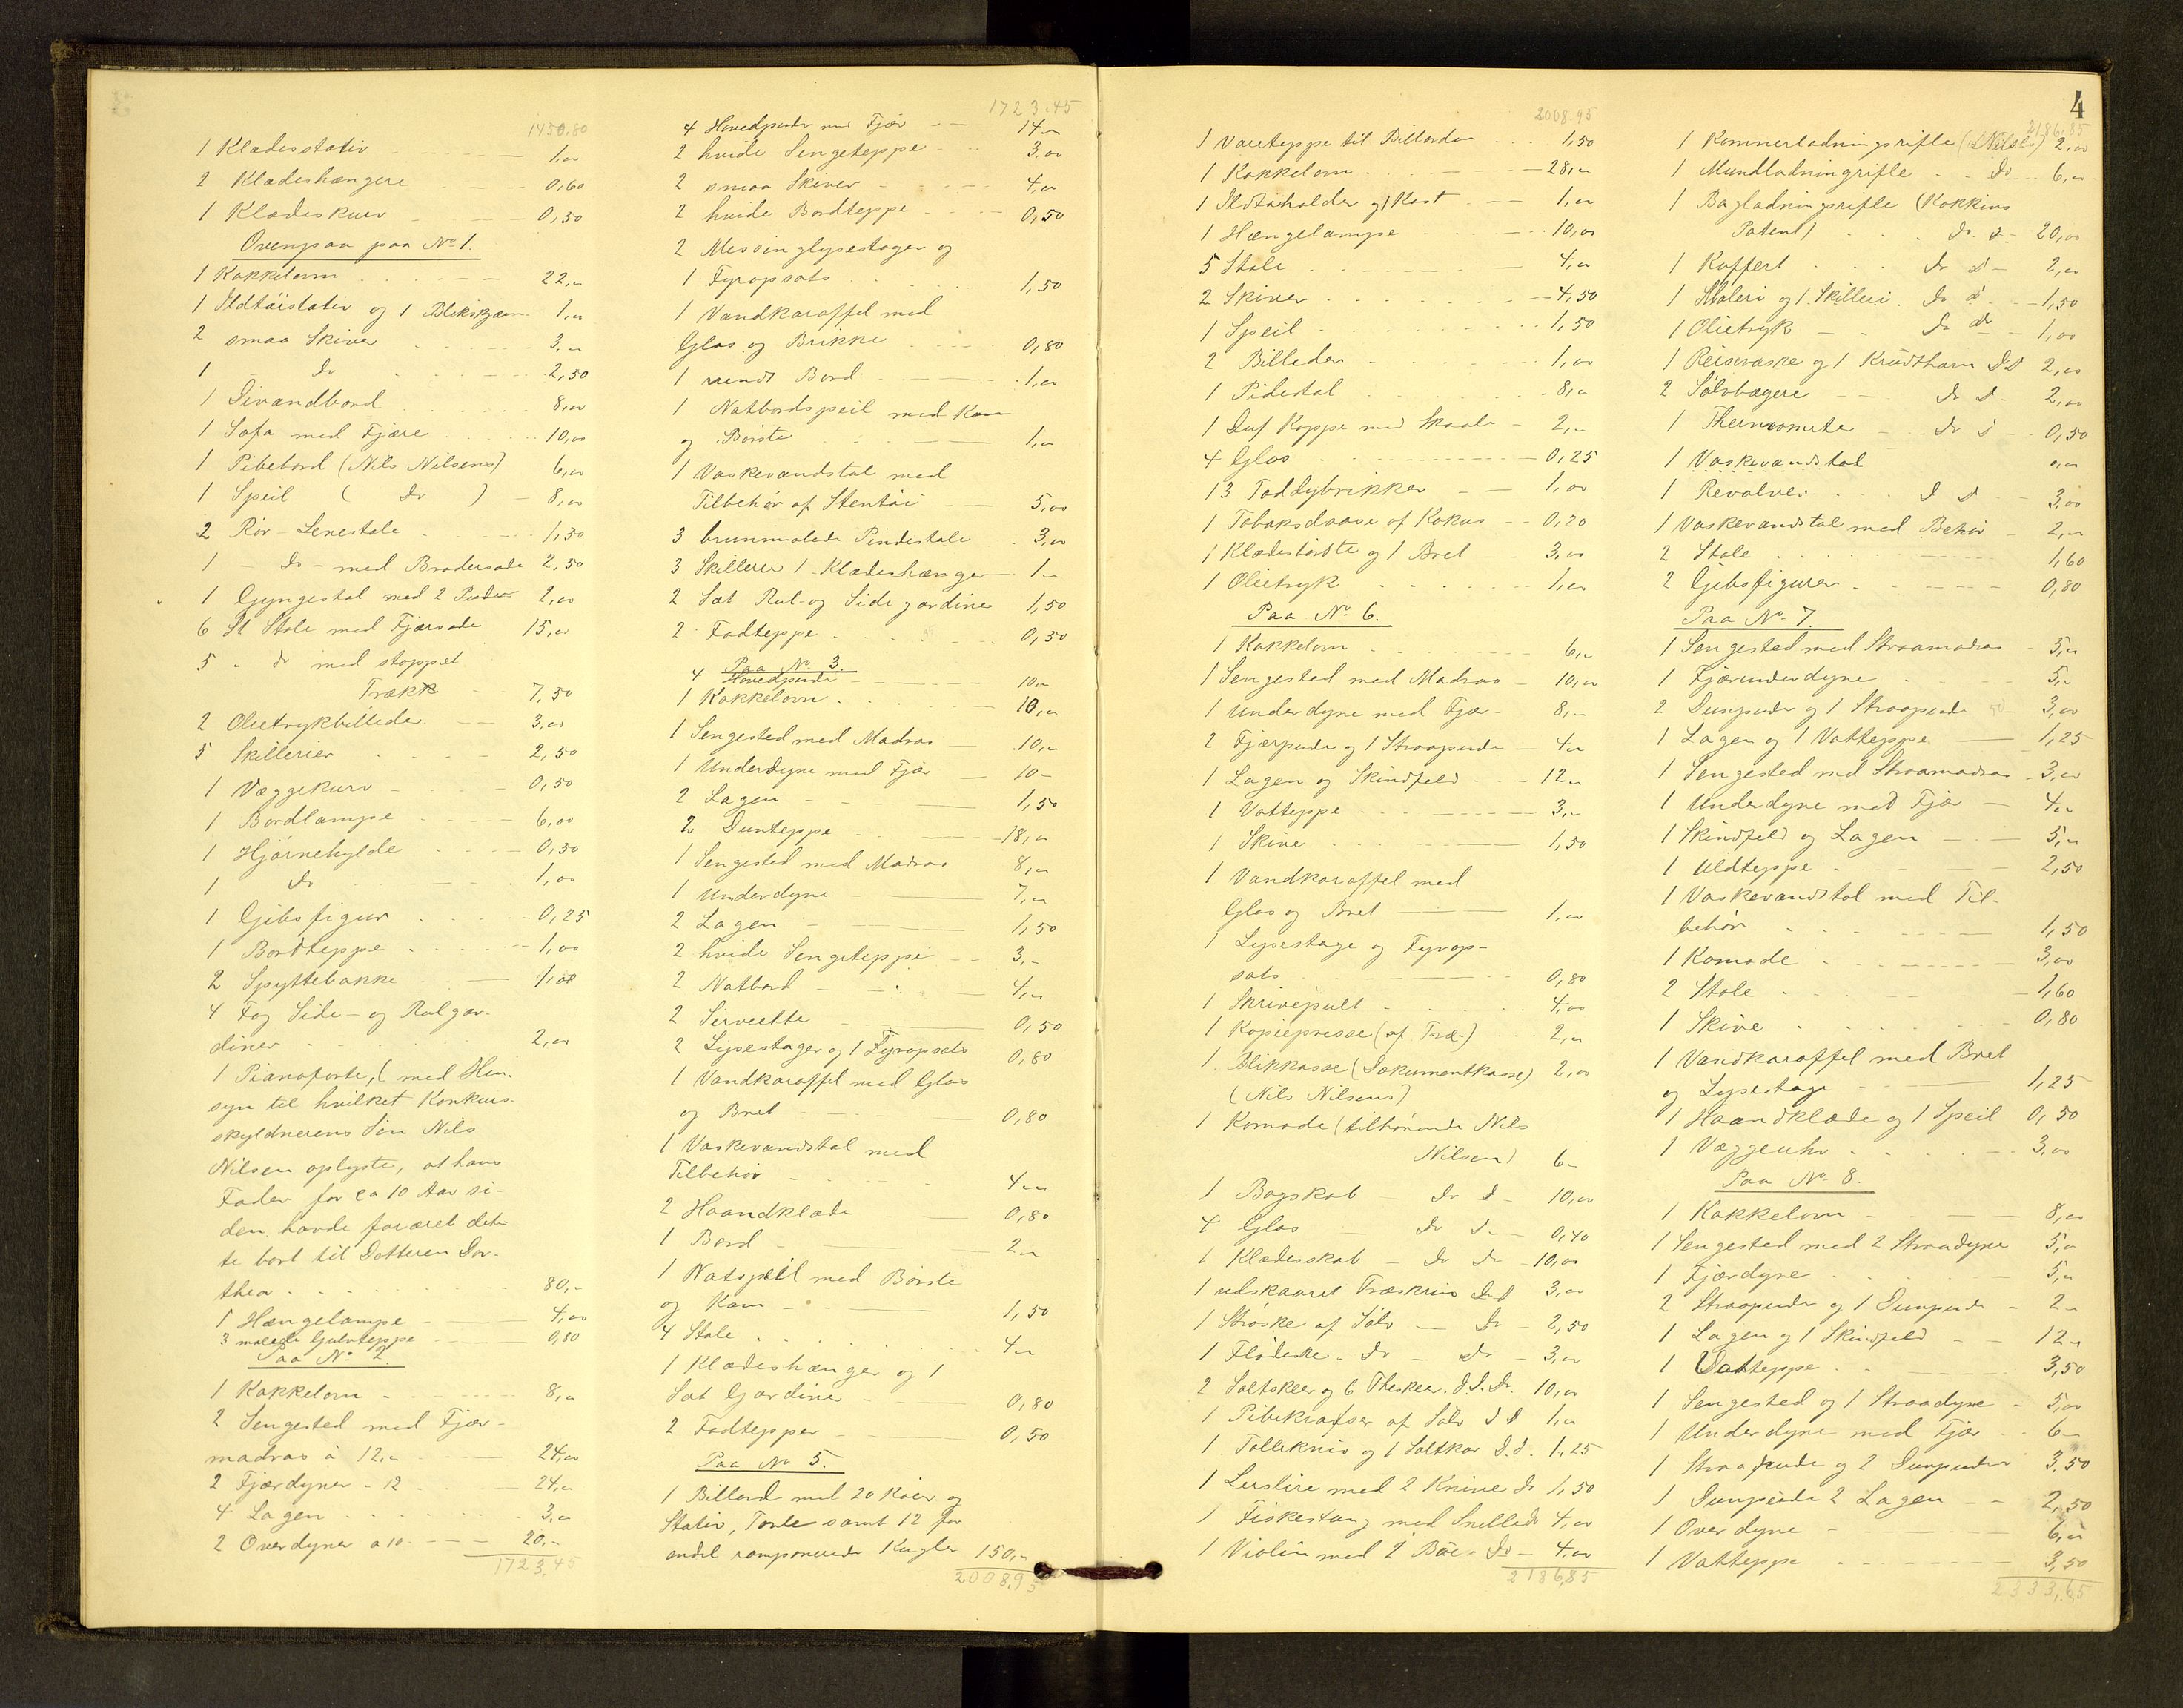 1450.80
1 Klædesstativ 1,00
2 Klædeshængere 0,60
1 Klædeskurv 0,50
Ovenpaa paa No 1.
1 Kakkelovn 22,„
1 Ildtöistativ og 1 Blikskjærm 1,„
2 smaa Skiver 3,„
1 - do 2,50
1 Divandbord 8,00
1 Sofa med Fjære 10,00
1 Pibebord (Nils Nilsens) 6,00
1 Speil ( do ) 8,00
2 Rör-Lenestole 1,50
1 - do - med Brodersæde 2,50
1 Gyngestol med 2 Puder 2,00
6 St Stole med Fjærsæde 15,00
5 " do med stoppet
Trækk 7,50
2 Olietrykbilleder 3,00
5 Skillerier 2,50
1 Væggekurv 0,50
1 Bordlampe 6,00
1 Hjörnehylde 0,30
1 do 1,00
1 Gibsfigur 0,25
1 Bordteppe 1,00
2 Spyttebakke 1,00
4 Fag Side- og Rulgar-
diner 2,00
1 Pianoforte, (med Hen-
syn til hvilket Konkurs-
skyldnerens Sön Nils
Nilsen oplyste, at hans
Fader for ca 10 Aar si-
den havde foræret det-
te bort til Datteren Dor-
thea 80,-
1 Hængelampe 4,00
3 malede Gulvteppe 0,80
Paa No 2.
1 Kakkelovn 8,„
2 Sengested med Fjær-
madras à 12,„ 24,00
2 Fjærdyner - 12 24,„
4 Lagen 3,„
2 Overdyner a 10 20,-
1723,45
1723.45
4 Hovedpuder med Fjær 14„
2 hvide Sengeteppe 3,00
2 smaa Skiver 4,„
2 hvide Bordteppe 0,50
2 Messinglysestager og
1 Fyropsats 1,50
1 Vandkaraffel med
Glas og Brikke 0,80
1 rundt Bord 1,00
1 Natbordspeil med Kam
og Börste 1,„
1 Vaskevandstol med
Tilbehör af Stentöi 5,00
3 brunmalede Pindestole 3,00
3 Skillerier 1 Klædeshænger 1„
2 Sæt Rul- og Sidegardiner 1,50
2 Fodteppe 0,30
Paa No 3.
4 Hovedpuder 10„
1 Kakkelovn 10,„
1 Sengested med Madras 10,„
1 Underdyne med Fjær 10-
2 Lagen 1,50
2 Dunteppe 18,„
1 Sengested med Madras 8,„
1 Underdyne 7,„
2 Lagen 1,50
2 hvide Sengeteppe 3,-
2 Natbord 4,„
2 Serviette 0,50
2 Lysestager og 1 Fyropsats 0,80
1 Vandkaraffel med Glas
og Bret 0,80
1 Vaskevandstol med
Tilbehör 4„
2 Haandklæde 0,80
1 Bord 2„
1 Natspeil med Börste
og Kam 1,50
4 Stole 4„
1 Klædeshænger og 1
Sæt Gardiner 0,80
2 Fodtepper 0,50
Paa No 5.
1 Billard med 20 Köer og
Stativ, Tavle samt 12 for
endel ramponerede Kugler 150,„
2008,95
2008.95
1 Voxteppe til Billarden 1,50
1 Kakkelovn 28,„
1 Ildtöiholder og 1 Kost 1,„
1 Hængelampe 10,00
5 Stole 4,„
2 Skiver 4,50
1 Speil 1,50
2 Billeder 1,00
1 Pidestal 8,„
1 Duf Koppe med Skaale 2,„
4 Glas 0,25
13 Toddybrikker 1,00
1 Tobaksdaase af Kokus 0,20
1 Klædesbörste og 1 Bret 3,00
1 Olietryk 1,00
Paa No 6.
1 Kakkelovn 6„
1 Sengested med Madras 10,00
1 Underdyne med Fjær 8,-
2 Fjærpude og 1 Straapude 4„
1 Lagen og Skindfeld 12„
1 Vatteppe 3,„
1 Skive 1,50
1 Vandkaraffel med
Glas og Bret 1,00
1 Lysestage og Fyrop-
sats 0,80
1 Skrivepult 4,00
1 Kopiepresse (af Træ) 2,„
1 Blikkasse (Dokumentkasse) 2,00
(Nils Nilsens)
1 Komode (tilhörende Nils
Nilsen) 6„
1 Bogskab do d- 10,00
4 Glas do d- 0,40
1 Klædesskab do do 10,00
1 udskaaret Træskrin d d 3,00
1 Ströske af Sölv do 2,50
1 Flödeske do - do - 3,00
2 Saltskeer og 6 Theskeer d. d. do. 10,00
1 Pibekradser af Sölv d d 1,„
1 Tolleknis og 1 Saltkar d. d. 1,25
1 Lerslire med 2 Knive do 1,50
1 Fiskestang med Snelle do 4,00
1 Violin med 2 Buer do - 4,00
2186,85
4
2186.85
1 Kammerladningsrifle (Nilsens) 2,00
1 Mundladningrifle do 6,„
1 Bagladningsrifle (Kokkins
Patent) do. d. 20,00
1 Koffert do d- 2,„
1 Maleri og 1 Skilleri do d. 1,50
1 Olietryk do do 1,00
1 Reisevæske og 1 Krudthorn d d 2,00
2 Sölvbægere do d. 2,00
1 Thermometer do d - 0,50
1 Vaskevandstol „„
1 Revolver d d 3,00
1 Vaskevandstol med Behör 2,„
2 Stole 1,60
2 Gibsfigurer 0,80
Paa No 7.
1 Sengested med Straamadras 5,„
1 Fjærunderdyne 5,„
2 Dunpuder og 1 Straapude 3,00
1 Lagen og 1 Vatteppe 1,25
1 Sengested med Straamadras 3,00
1 Underdyne med Fjær 4„
1 Skindfeld og Lagen 5,„
1 Uldteppe 2,50
1 Vaskevandstol med Til-
behör 1,50
1 Komode 3,00
2 Stole 1,60
1 Skive 0,80
1 Vandkaraffel med Bret
og Lysestage 1,25
1 Haandklæde og 1 Speil 0,50
1 Væggeuhr 3,00
Paa No 8.
1 Kakkelovn 8,00
1 Sengested med 2 Straadyne 5,„
1 Fjærdyne 5,„
2 Straapuder og 1 Dunpude 2„
1 Lagen og 1 Skindfeld 12„
1 Vatteppe 3,50
1 Sengested og 1 Straadyne 5,00
1 Underdyne med Fjær 6„
1 Straapude og 2 Dunpuder 3,50
1 Dunpude 2 Lagen 2,50
1 Overdyne 6,„
1 Vatteppe 3,50
2333,65